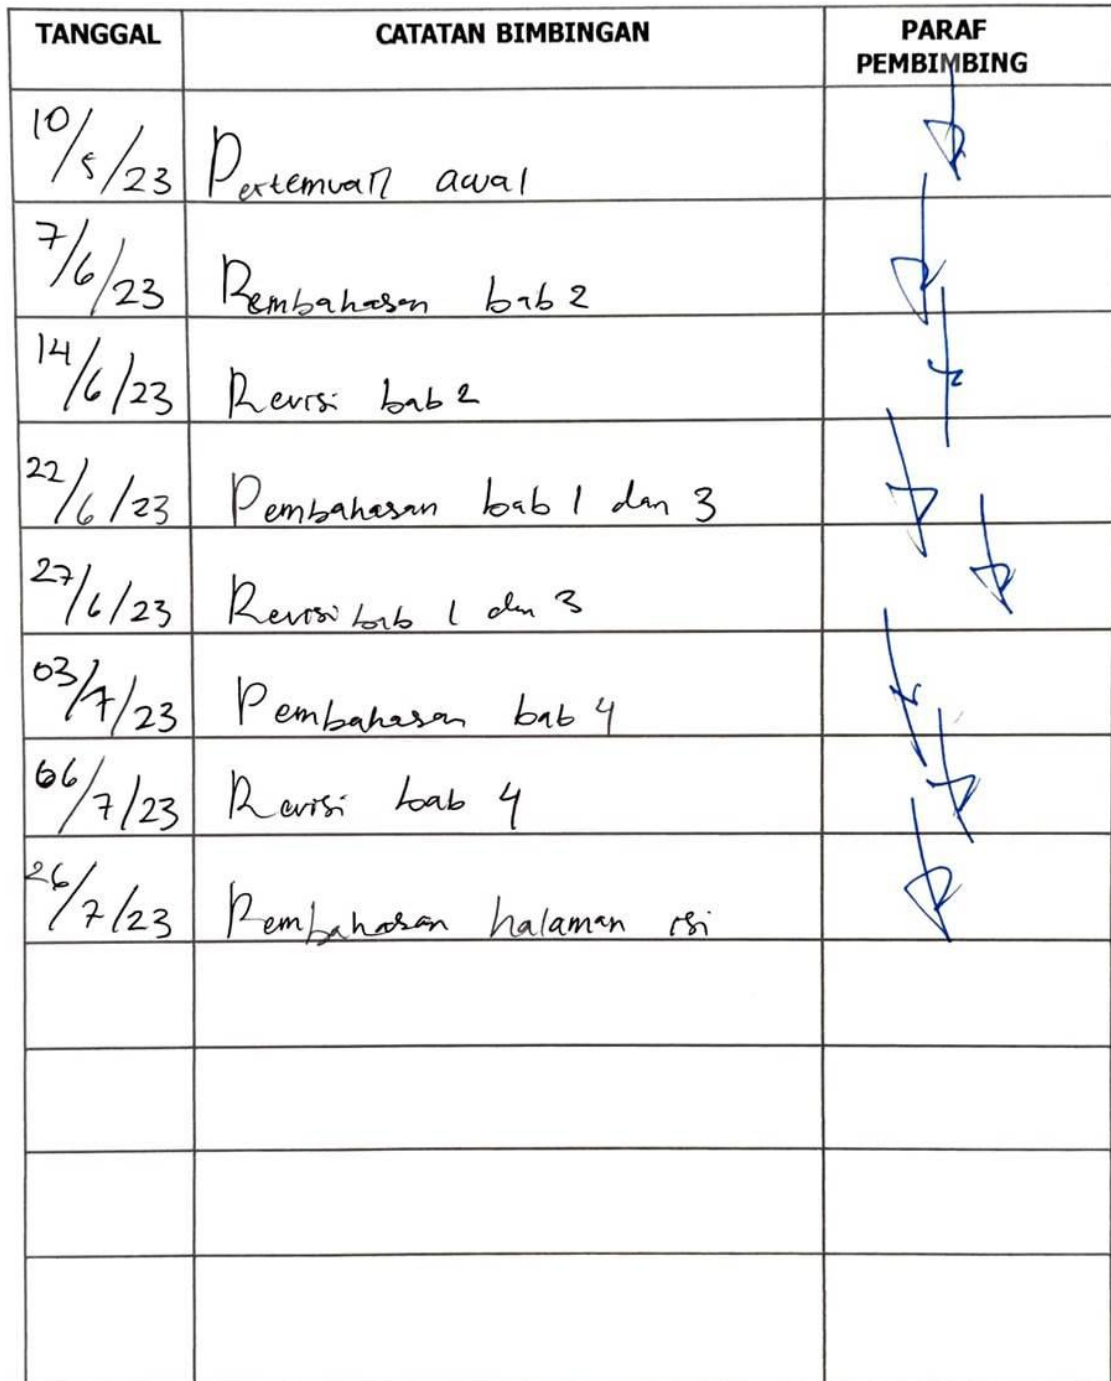 TANGGAL CATATAN BIMBINGAN PARAF
PEMBIMBING
10/5/23 Pertemuan awal
7/6/23 Pembahasan bab 2
14/6/23 Revisi bab 2
22/6/23 Pembahasan bab 1 dan 3
27/6/23 Revisi bab 1 dan 3
03/7/23 Pembahasan bab 4
06/7/23 Revisi bab 4
26/7/23 Pembahasan halaman isi